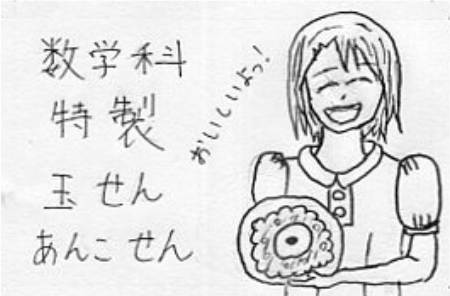 数学科
特製
玉せん
あんこせん
おいしいよっ!